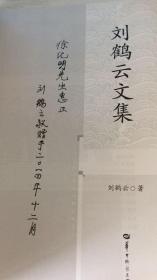 刘鹤云文集
刘鹤云◎著
徐亿明先生惠正
刘鹤云敬赠于二〇一四年十二月